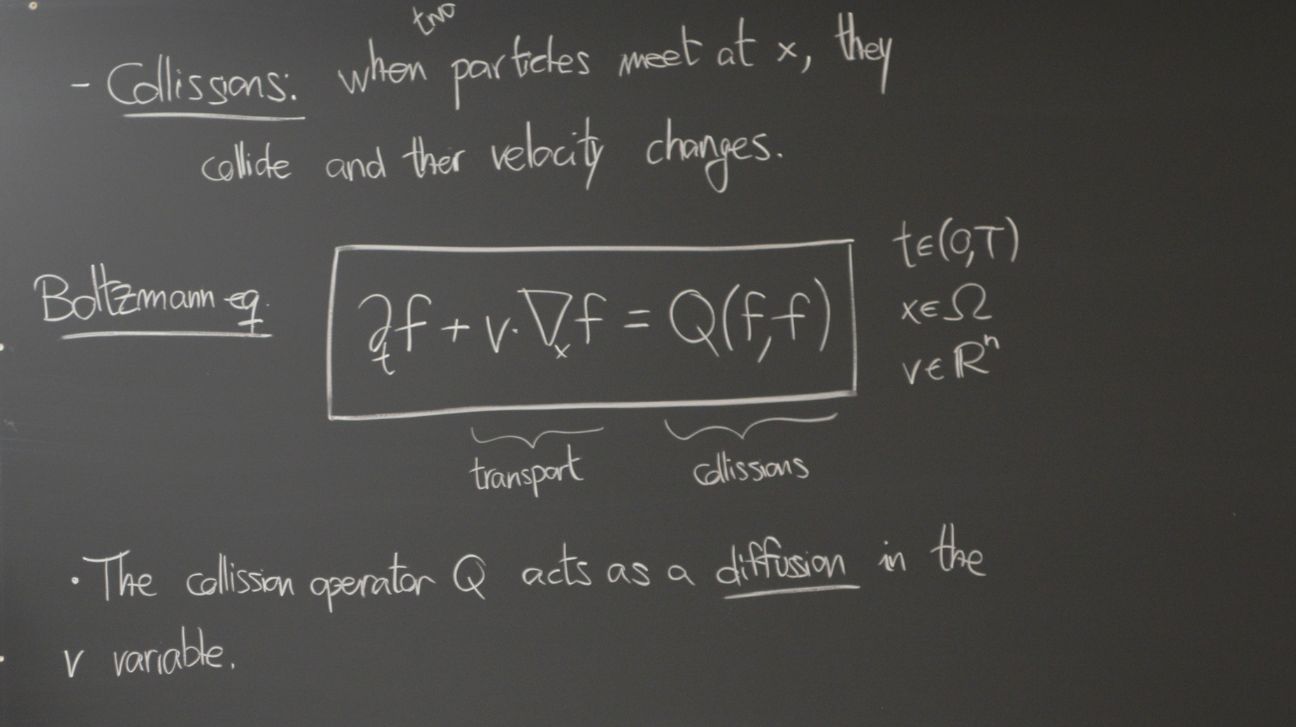 - Collissons: when two particles meet at x, they
collide and ther velocity changes.
Boltzmann eq. ∂ₜf + v·∇ₓf = Q(f,f)
t∈(0,T)
x∈Ω
v∈ℝⁿ
transport collissions
· The collission operator Q acts as a diffusion in the
v variable.